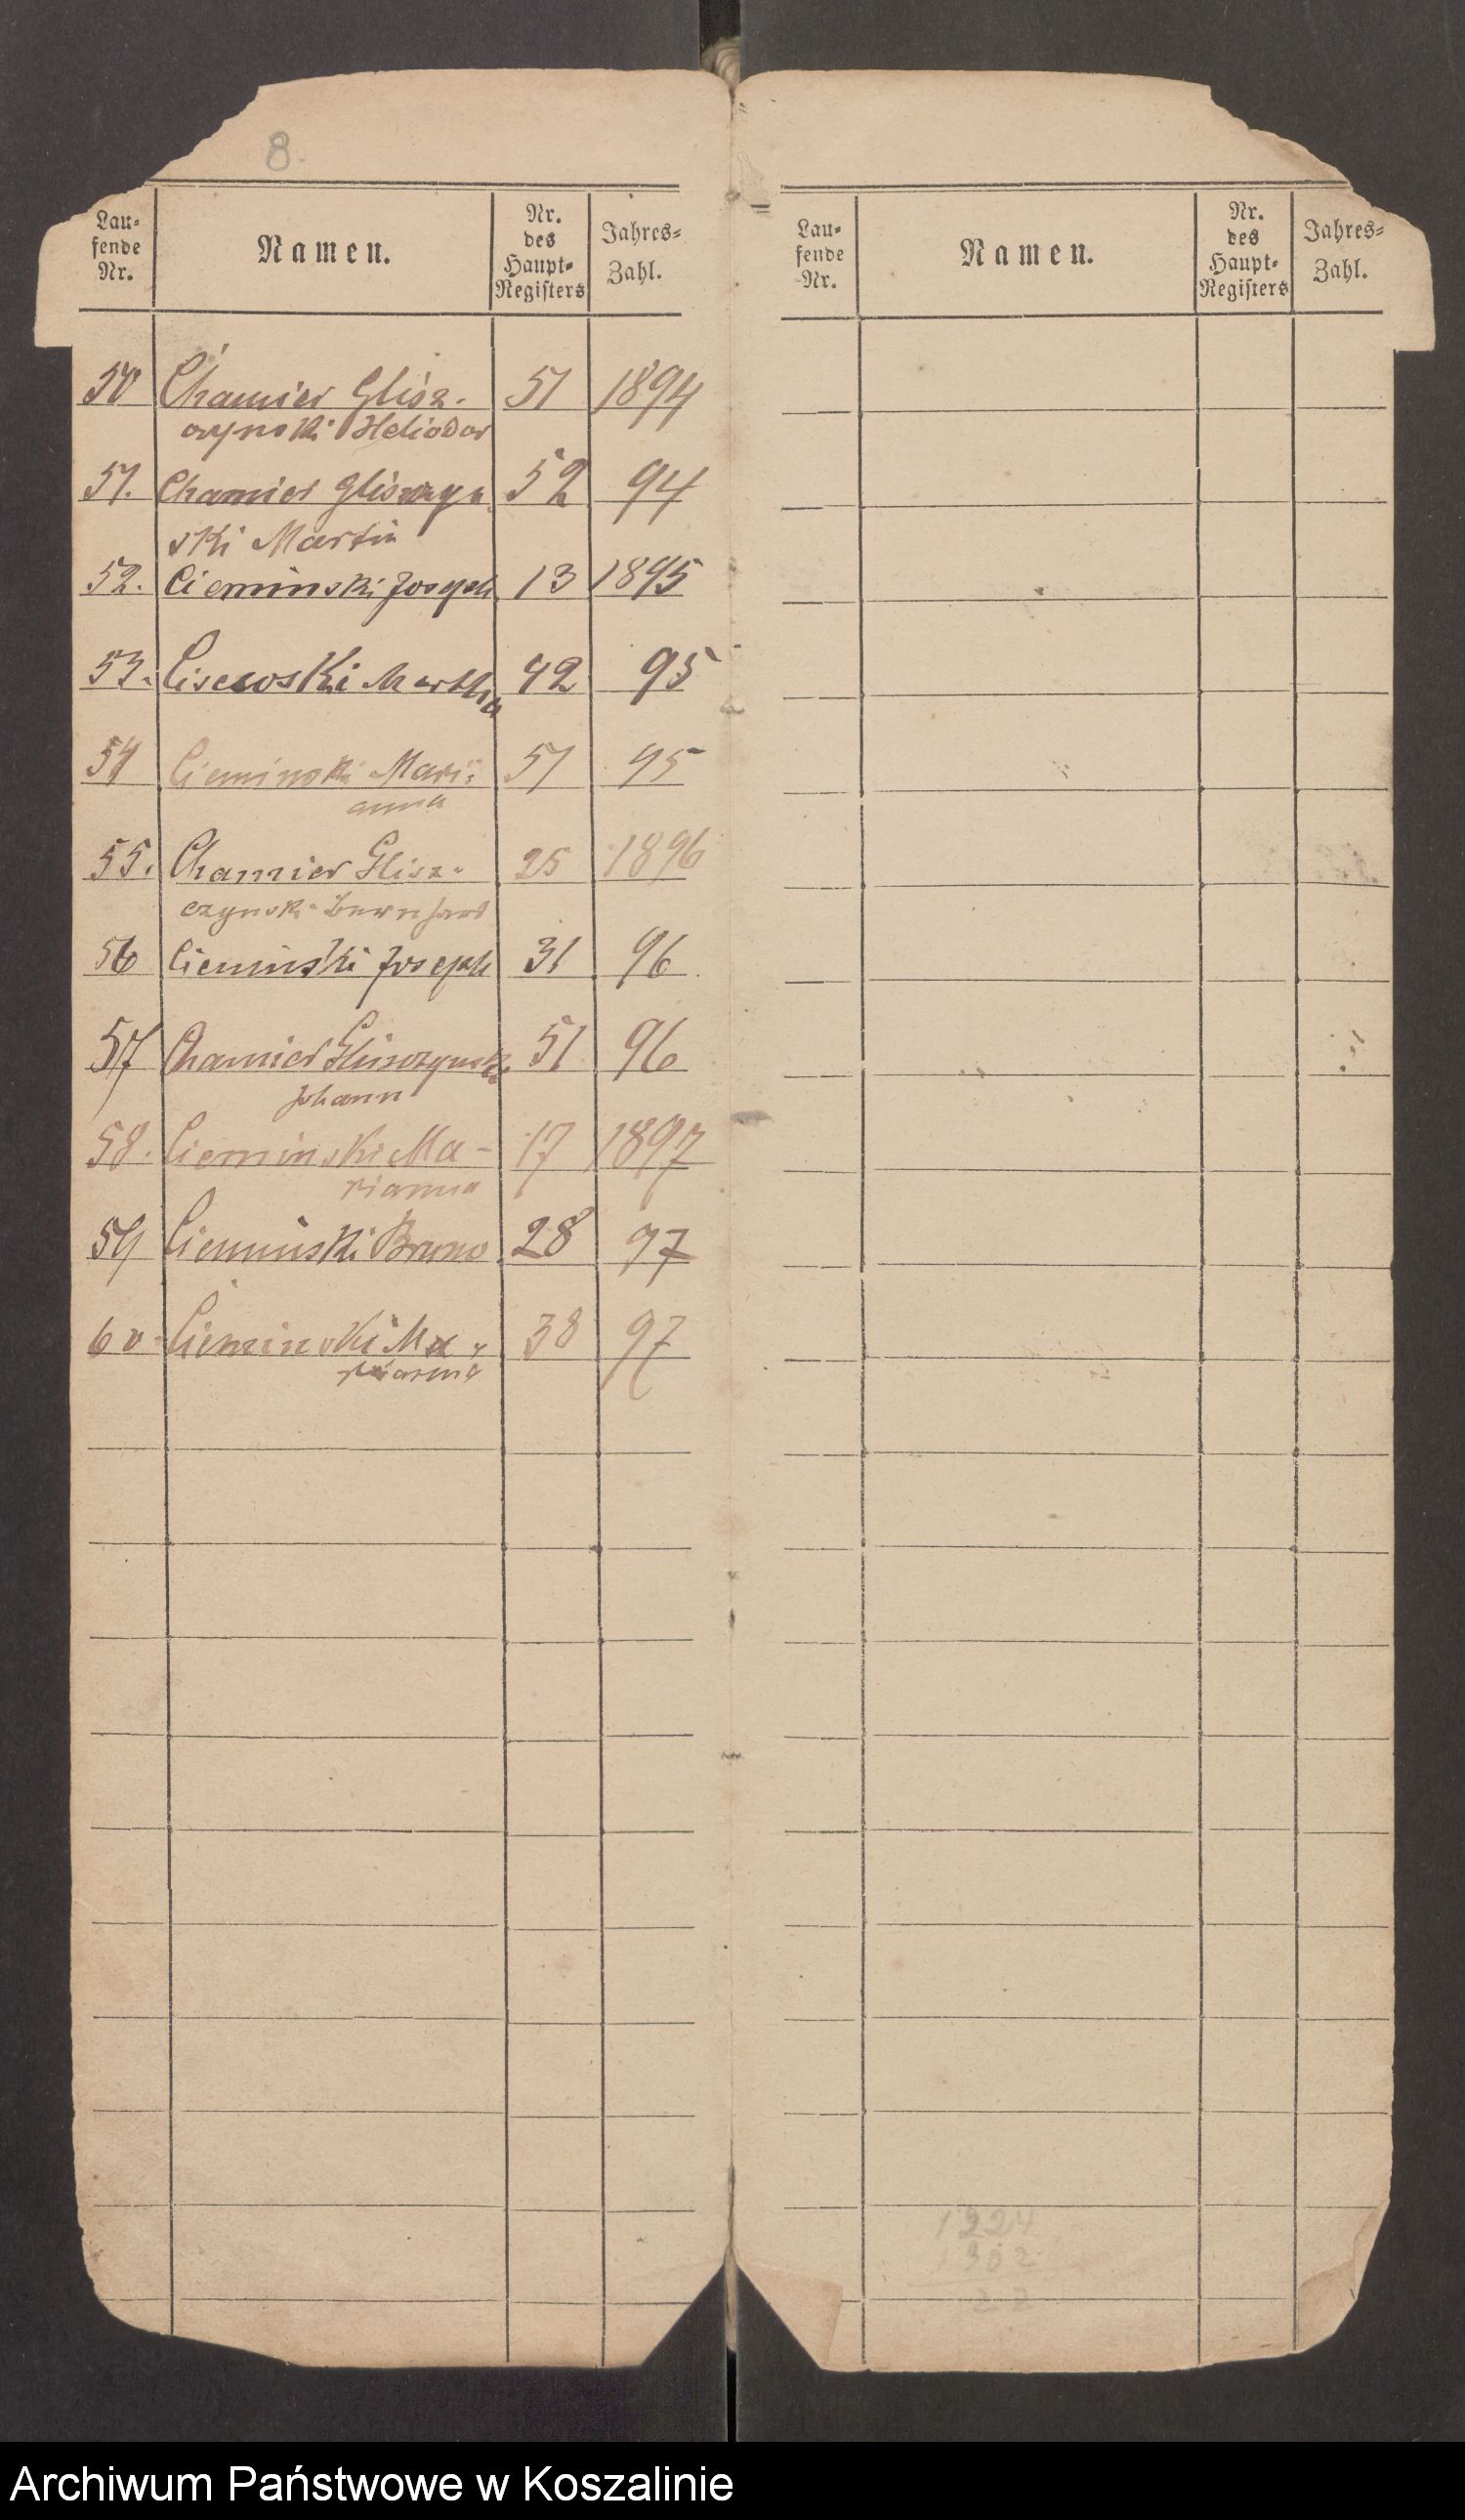 8.
Lau-
fende
Nr.
Namen.
Nr.
des
Haupt-
Registers
Jahres-
Zahl.
50 Chamier Glisz- 51 1894
czynski Heliodor
51. Chamier Gliszczyn 52 94
ski Martin
52. Cieminski Joseph 13 1895
53. Cisewski Martha 42 95
54 Cieminski Mari- 51 95
anna
55. Chamier Glisz- 25 1896
czynski Bernhard
56 Cieminski Joseph 31 96
57 Chamier Gliszczynski 51 96
Johann
58. Cieminski Ma- 17 1897
rianna
59 Cieminski Bruno 28 97
60. Cieminski Ma- 38 97
rianna
Lau-
fende
Nr.
Namen.
Nr.
des
Haupt-
Registers
Jahres-
Zahl.
1224
1302
22
Archiwum Państwowe w Koszalinie